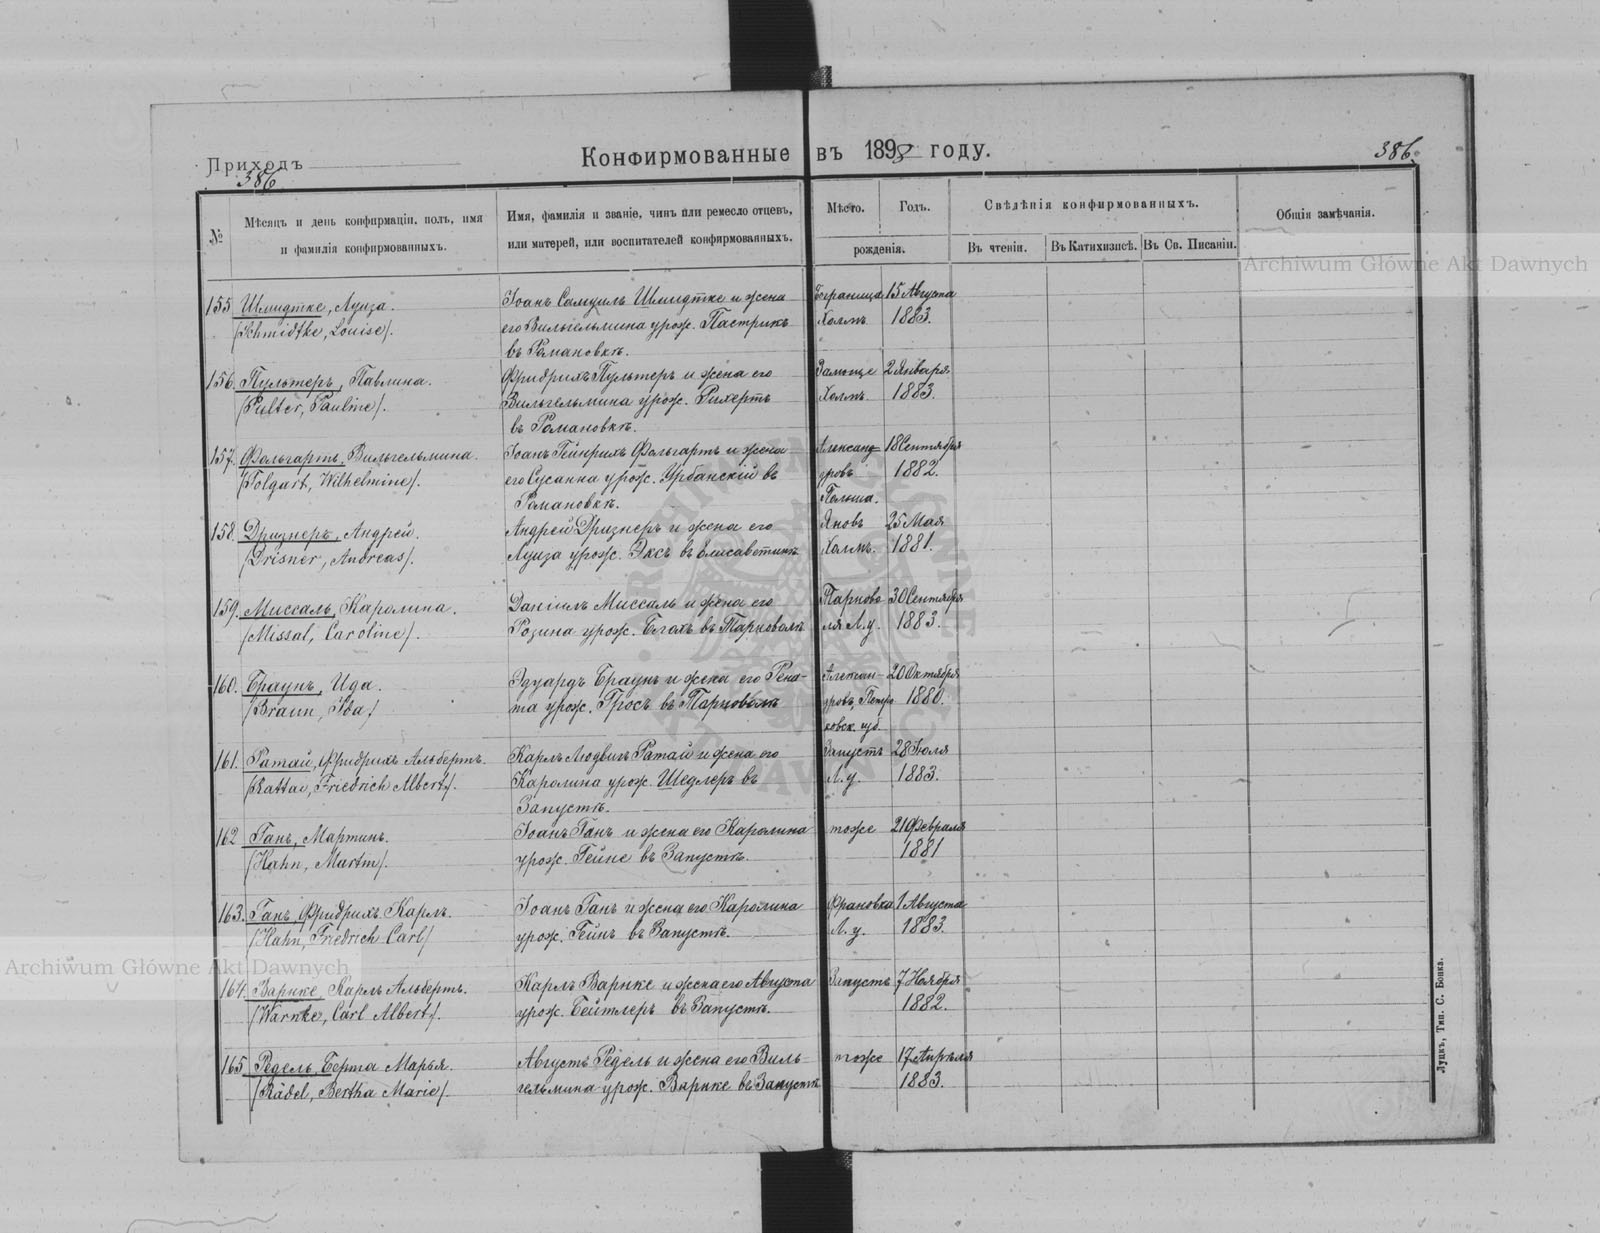 Приходъ
386
Конфирмованные въ 1898 году.
386.
№
Мѣсяцъ и день конфирмаціи, полъ, имя
и фамилія конфирмованныхъ.
Имя, фамилія и званіе, чинъ или ремесло отцевъ,
или матерей, или воспитателей конфирмованныхъ.
Мѣсто.
Годъ.
рожденія.
Свѣдѣнія конфирмованныхъ.
Въ чтеніи.
Въ Катихизисѣ.
Въ Св. Писаніи.
Общія замѣчанія.
155 Шмидтке, Луиза.
/Schmidtke, Louise/.
Іоанъ Самуилъ Шмидтке и жена
его Вильгельмина урож. Пастрикъ
въ Романовкѣ.
Холмъ
15 Августа
1883.
156. Пультеръ, Павлина.
/Pulter, Pauline/.
Фридрихъ Пультеръ и жена его
Вильгельмина урож. Рихертъ
въ Романовкѣ.
Холмъ.
2 Января
1883.
157. Фольгартъ, Вильгельмина.
/Folgart, Wilhelmine/.
Іоанъ Гейнрихъ Фольгартъ и жена
его Сусанна урож. Урбанскій въ
Романовкѣ.
Александ-
ровъ
Польша.
18 Сентября
1882.
158. Дризнеръ, Андрей.
/Drisner, Andreas/.
Андрей Дризнеръ и жена его
Луиза урож. Эксъ въ Елисаветинѣ
Яновъ
Холмъ.
25 Мая
1881.
159. Миссаль, Каролина.
/Missal, Caroline/.
Даніилъ Миссаль и жена его
Розина урож. Блохъ въ Тарноволѣ
Тарново
ля Л.у.
30 Сентября
1883.
160. Браунъ, Ида.
/Braun, Ida/
Эдуардъ Браунъ и жена его Рена-
та урож. Гросъ въ Тарноволѣ
Алексан-
дровъ, Петро
ковск. губ.
20 Октября
1880.
161. Ратай, Фридрихъ Альбертъ.
/Rattai, Friedrich Albert/.
Карлъ Людвигъ Ратай и жена его
Каролина урож. Шедлеръ въ
Запустѣ.
Запустъ
Л.у.
28 Іюля
1883.
162 Ганъ, Мартинъ.
/Hahn, Martin/.
Іоанъ Ганъ и жена его Каролина
урож. Гейне въ Запустѣ.
тоже
21 Февраля
1881
163. Ганъ, Фридрихъ Карлъ.
/Hahn, Friedrich Carl/
Іоанъ Ганъ и жена его Каролина
урож. Гейнъ въ Запустѣ.
Франовка
Л.у.
1 Августа
1883.
164. Варнке Карлъ Альбертъ.
/Warnke, Carl Albert/.
Карлъ Варнке и жена его Августа
урож. Бейтлеръ въ Запустѣ.
Запустъ
7 Ноября
1882.
165 Редель, Берта Марья.
/Rädel, Bertha Marie/.
Августъ Редель и жена его Виль-
гельмина урож. Варнке въ Запустѣ
тоже
17 Апрѣля
1883.
Луцкъ, Тип. С. Бонка.
Archiwum Główne Akt Dawnych
Archiwum Główne Akt Dawnych